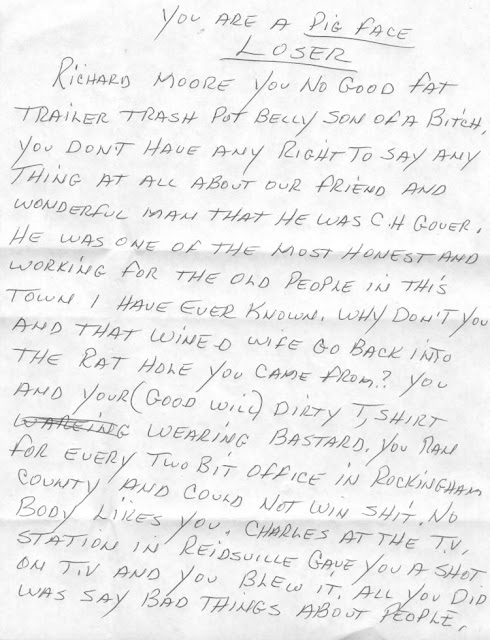 YOU ARE A PIG FACE
LOSER
RICHARD MOORE YOU NO GOOD FAT
TRAILER TRASH POT BELLY SON OF A BITCH,
YOU DON'T HAVE ANY RIGHT TO SAY ANY
THING AT ALL ABOUT OUR FRIEND AND
WONDERFUL MAN THAT HE WAS C.H GOVER.
HE WAS ONE OF THE MOST HONEST AND
WORKING FOR THE OLD PEOPLE IN THIS
TOWN I HAVE EVER KNOWN. WHY DON'T YOU
AND THAT WINE-O WIFE GO BACK INTO
THE RAT HOLE YOU CAME FROM.? YOU
AND YOUR (GOOD WILL) DIRTY T, SHIRT
WAREING WEARING BASTARD. YOU RAN
FOR EVERY TWO BIT OFFICE IN ROCKINGHAM
COUNTY AND COULD NOT WIN SHIT. NO
BODY LIKES YOU. CHARLES AT THE T.V,
STATION IN REIDSVILLE GAVE YOU A SHOT
ON T.V AND YOU BLEW IT. ALL YOU DID
WAS SAY BAD THINGS ABOUT PEOPLE.